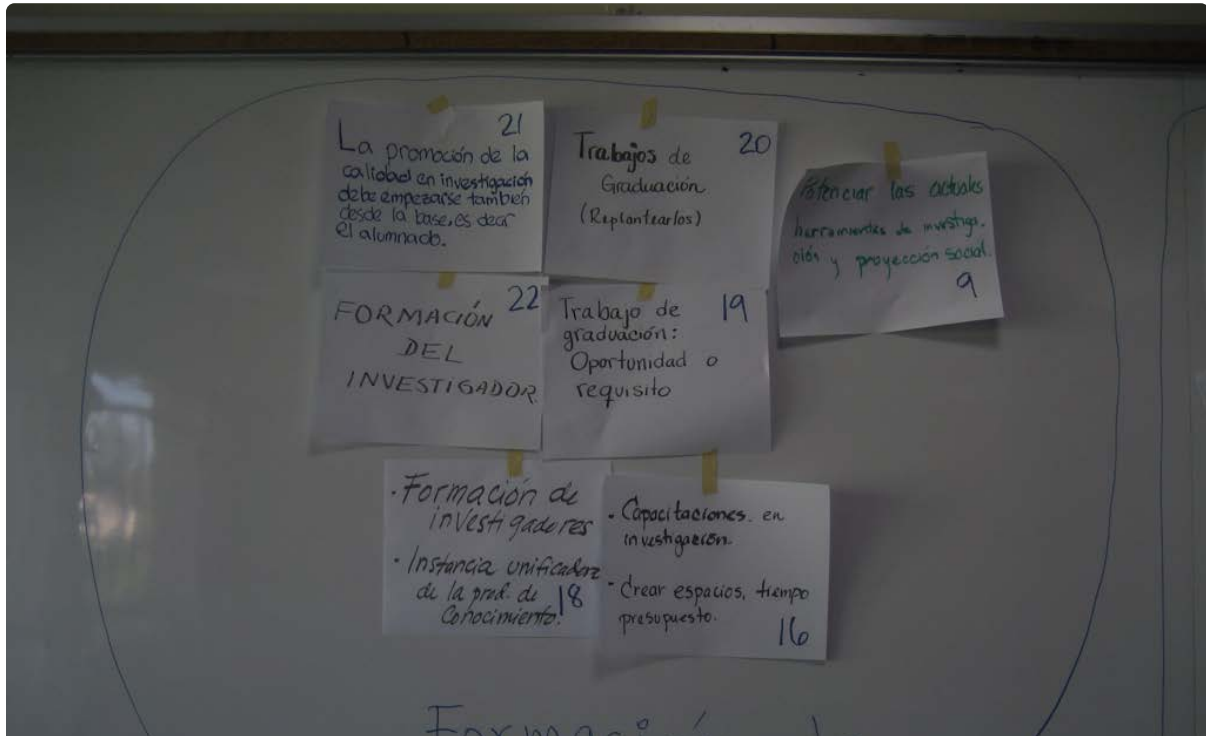 21
La promoción de la
calidad en investigación
debe empezarse también
desde la base, es decir
el alumnado.
20
Trabajos de
Graduación
(Replantearlos)
Potenciar las actuales
herramientas de investiga-
ción y proyección social.
9
22
FORMACIÓN
DEL
INVESTIGADOR.
19
Trabajo de
graduación:
Oportunidad o
requisito
· Formación de
investigadores
· Instancia unificadora
de la prod. de
Conocimiento.
18
· Capacitaciones. en
investigación.
· Crear espacios, tiempo
presupuesto.
16